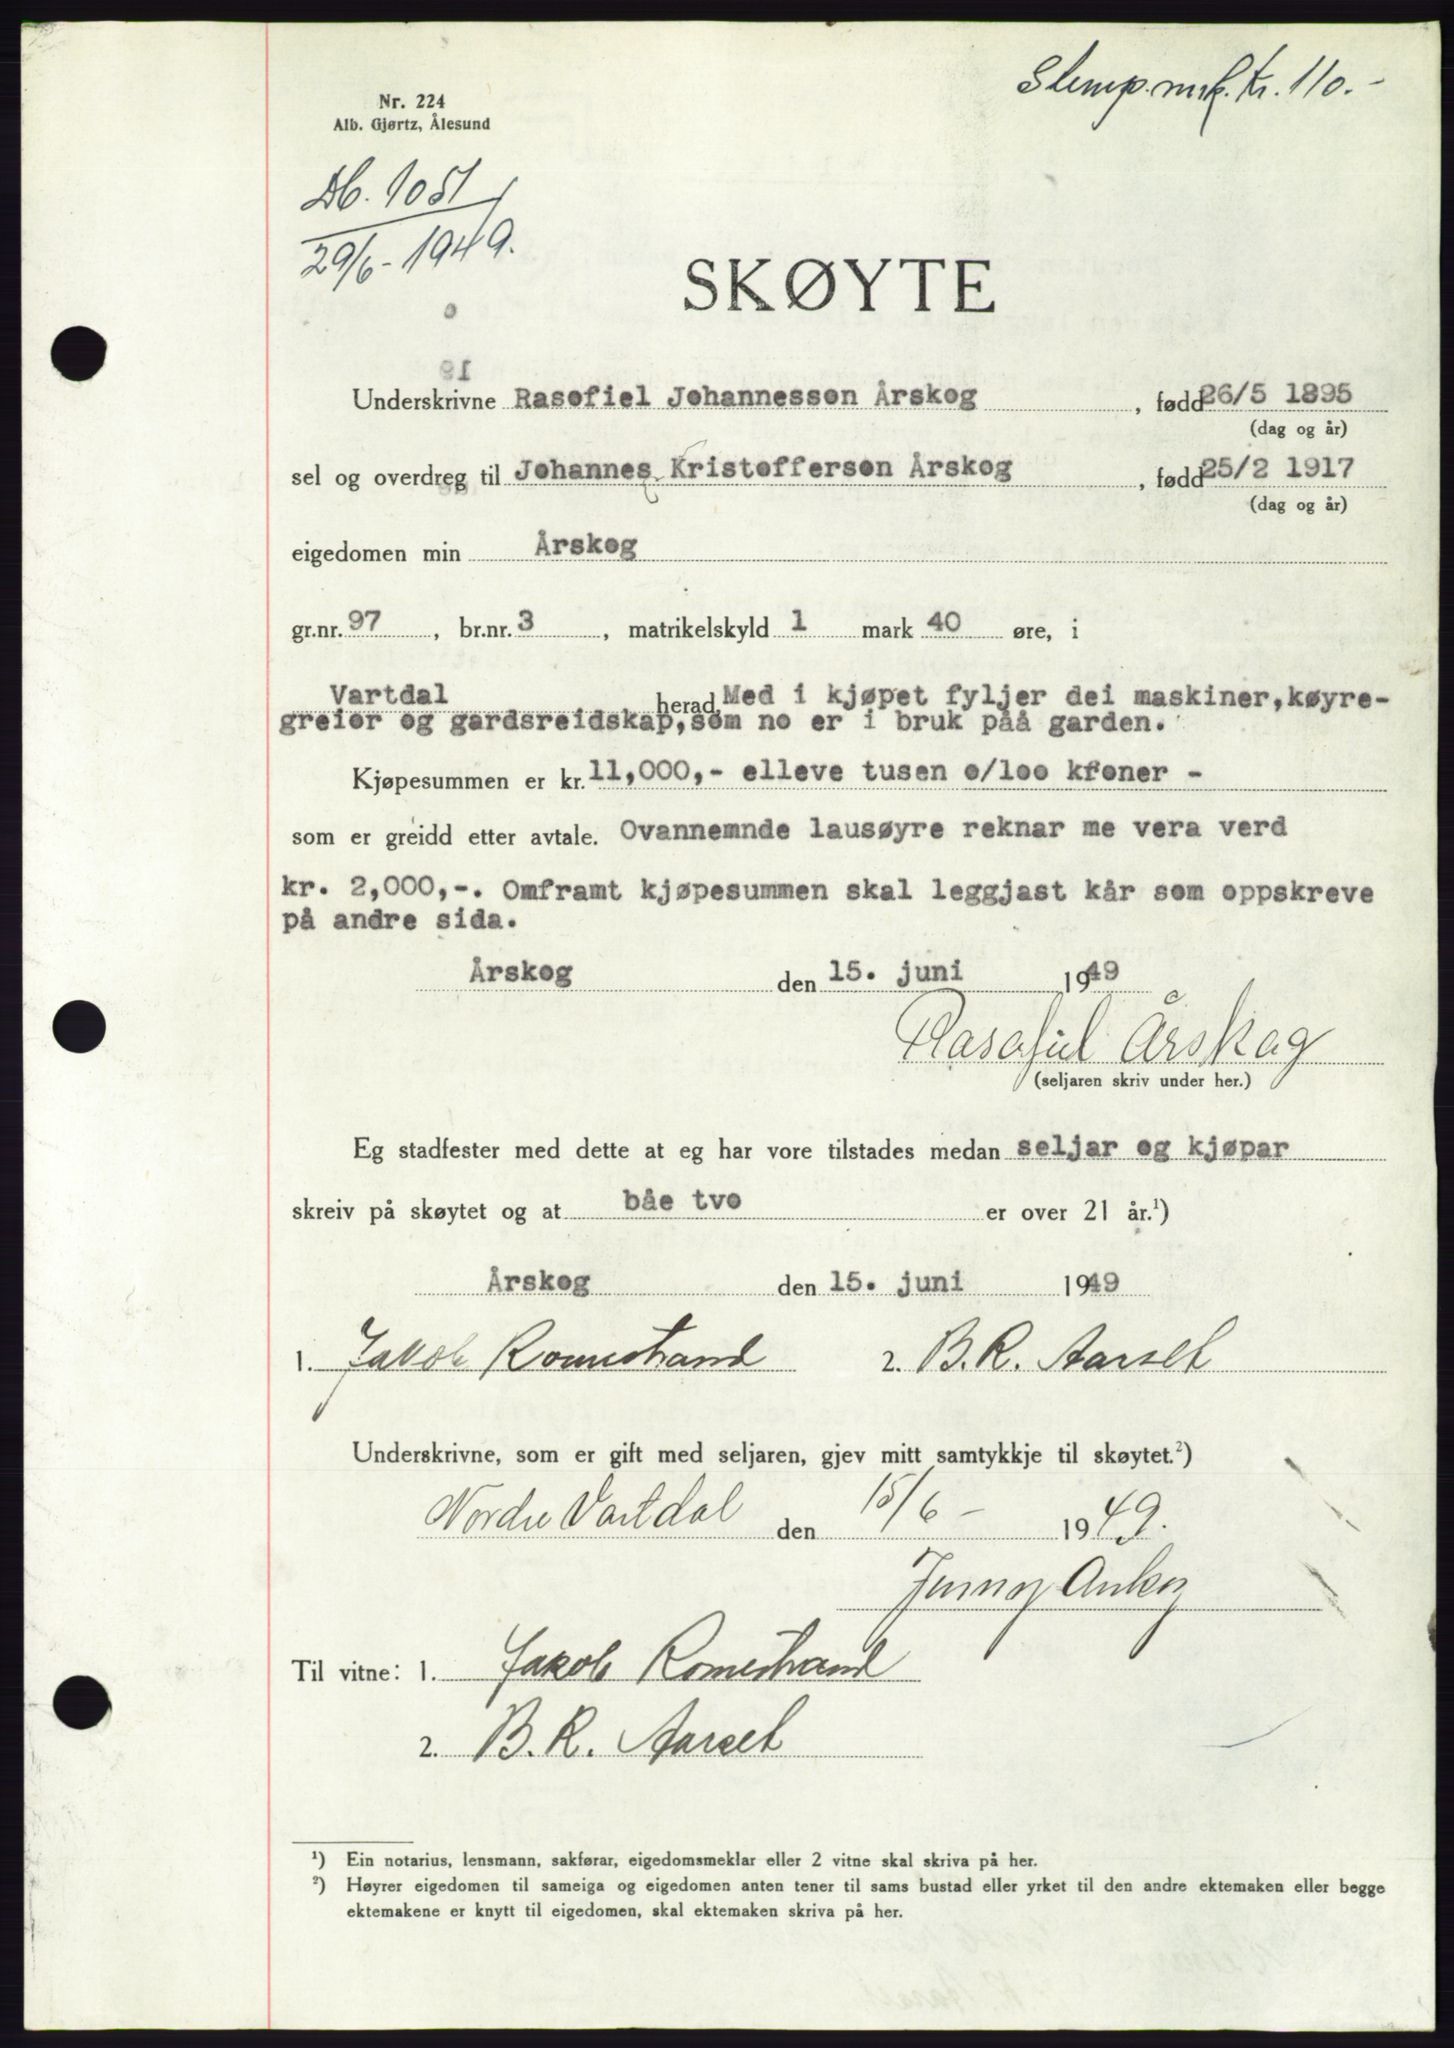 Stemp.mrk. Kr. 110.-
Nr. 224
Alb. Gjørtz, Ålesund
Db. 1051
29/6-1949.
SKØYTE
Underskrivne Rasofiel Johannesson Årskog , fødd 26/5 1895
(dag og år)
sel og overdreg til Johannes Kristofferson Årskog , fødd 25/2 1917
(dag og år)
eigedomen min Årskog
gr.nr. 97 , br.nr. 3 , matrikelskyld 1 mark 40 øre, i
Vartdal herad Med i kjøpet fyljer dei maskiner,køyre-
greior og gardsreidskap,som no er i bruk påå garden.
Kjøpesummen er kr. 11,000,- elleve tusen o/loo kroner -
som er greidd etter avtale. Ovannemnde lausøyre reknar me vera verd
kr. 2,000,-. Omframt kjøpesummen skal leggjast kår som oppskreve
på andre sida.
Årskog den 15. juni 1949
Rasofiel Årskog
(seljaren skriv under her.)
Eg stadfester med dette at eg har vore tilstades medan seljar og kjøpar
skreiv på skøytet og at båe tvo er over 21 år.¹)
Årskog den 15. juni 1949
1. Jakob Romestrand 2. B.R. Aarset
Underskrivne, som er gift med seljaren, gjev mitt samtykkje til skøytet.²)
Nordre Vartdal den 15/6- 1949.
Jenny
Til vitne: 1. Jakob Romestrand
2. B.R. Aarset
¹) Ein notarius, lensmann, sakførar, eigedomsmeklar eller 2 vitne skal skriva på her.
²) Høyrer eigedomen til sameiga og eigedomen anten tener til sams bustad eller yrket til den andre ektemaken eller begge
ektemakene er knytt til eigedomen, skal ektemaken skriva på her.